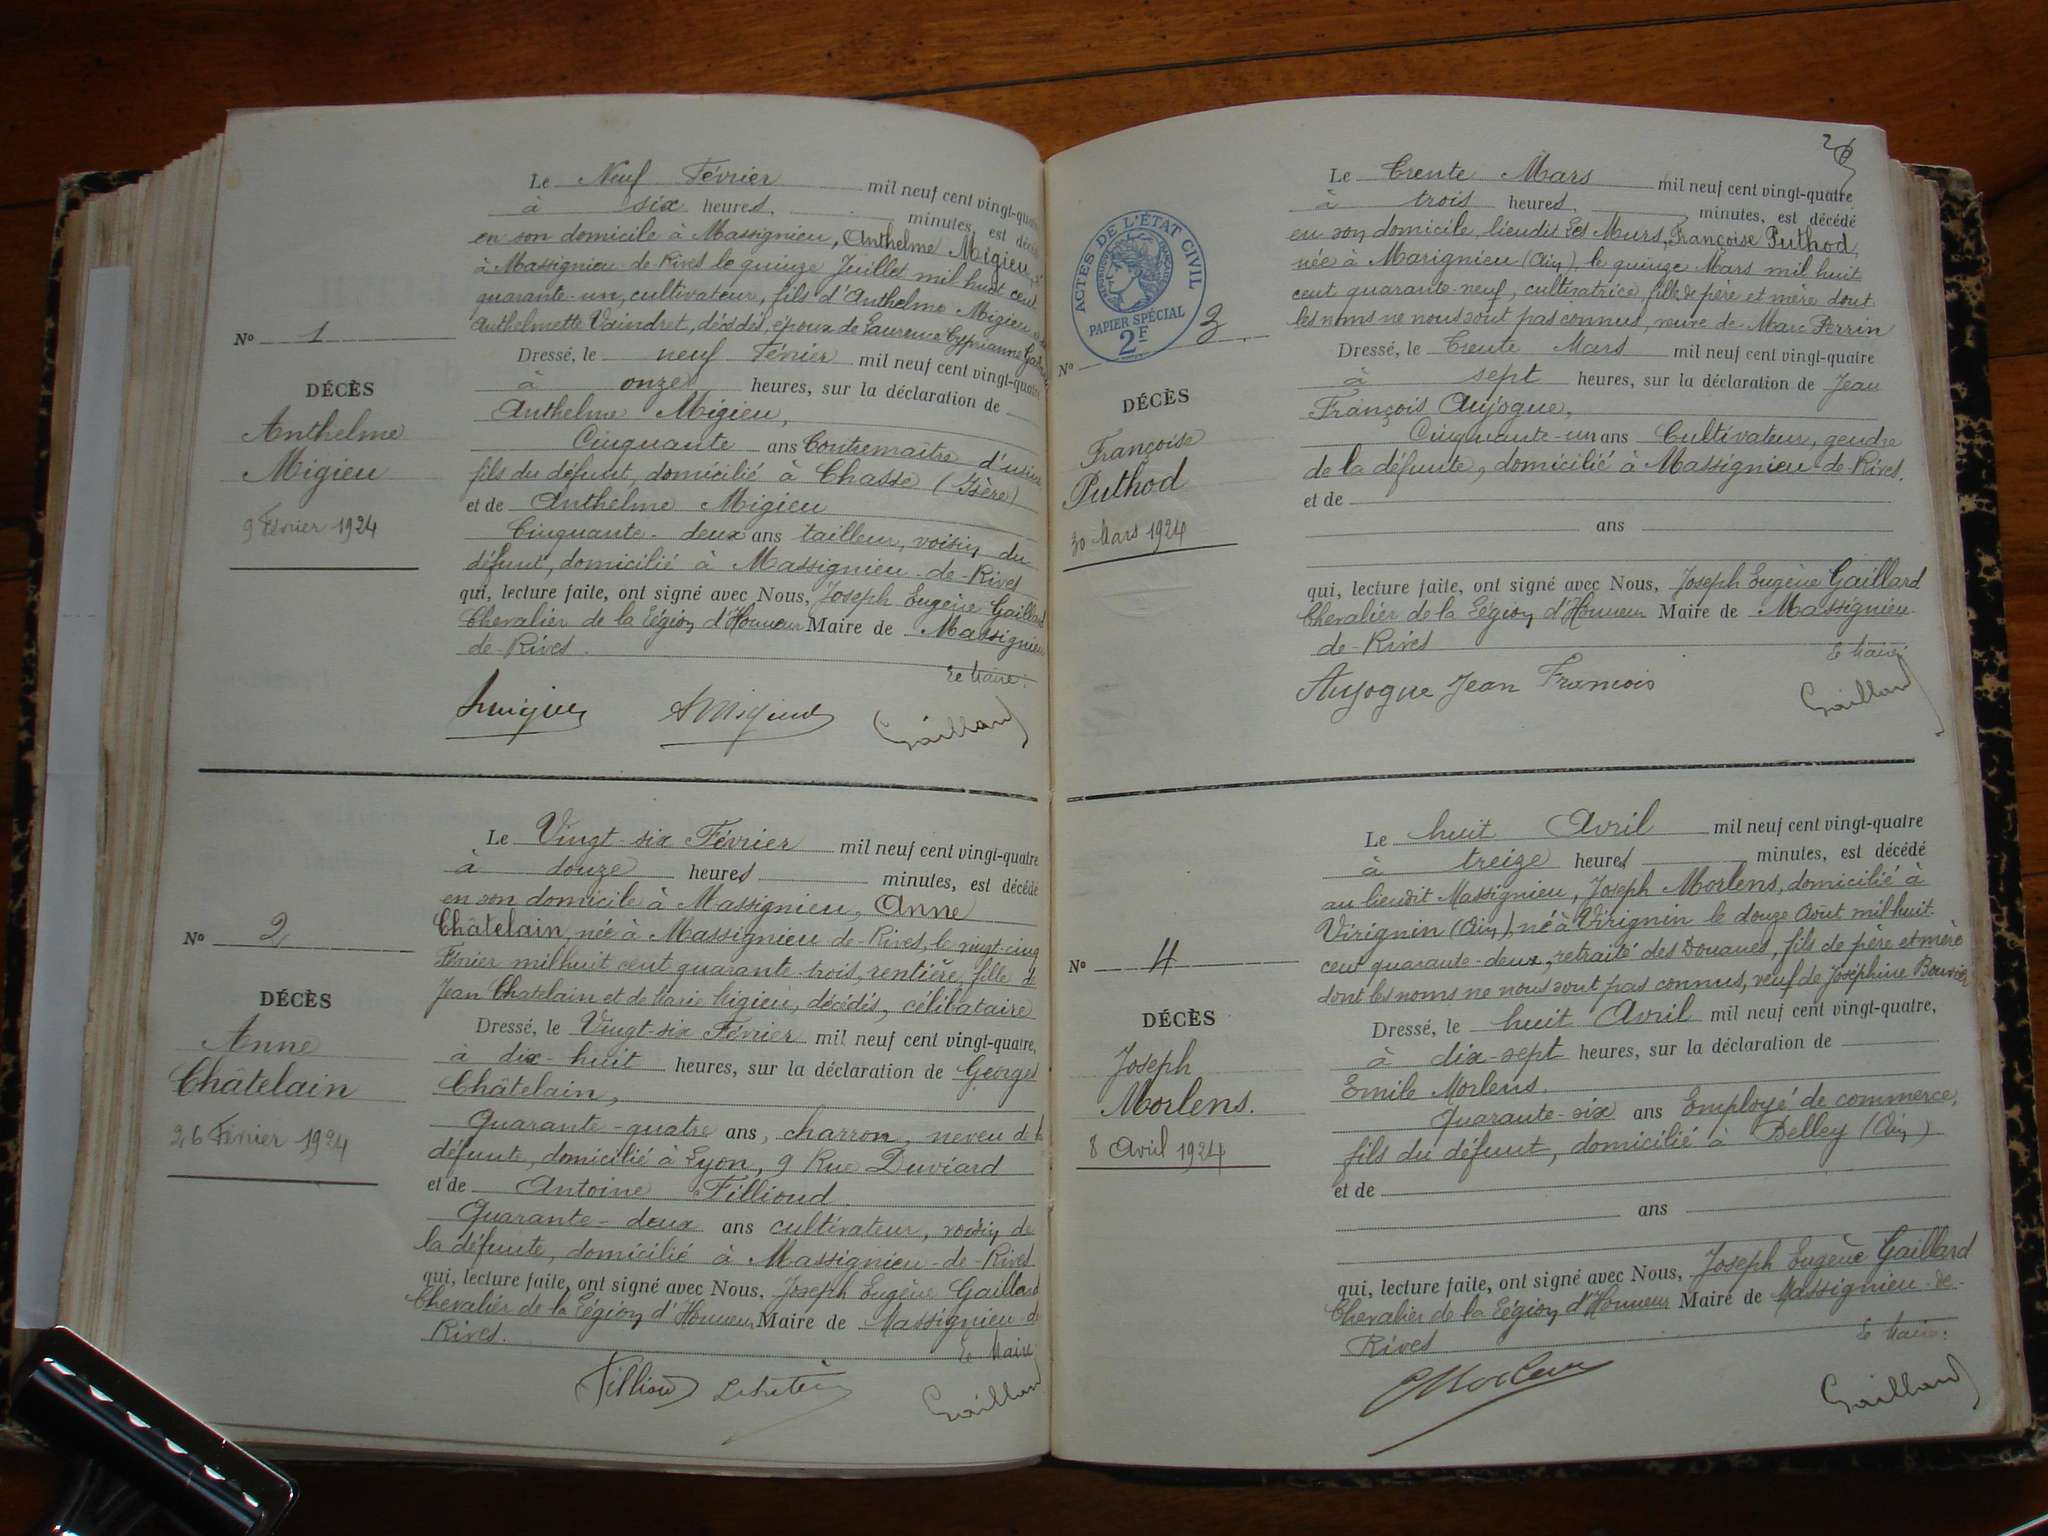 Le Neuf Février mil neuf cent vingt-quatre
à six heures, minutes, est décédé
en son domicile à Massignieu, Anthelme Migieu, né
à Massignieu-de-Rives le quinze Juillet mil huit cent
quarante-un, cultivateur, fils d'Anthelme Migieu
Anthelmette Vaindret, décédés, époux de Laurence Cyprianne
Dressé, le neuf Février mil neuf cent vingt-quatre
à onze heures, sur la déclaration de
Anthelme Migieu,
Cinquante ans Contremaître d'usine
fils du défunt, domicilié à Chasse (Isère)
et de Anthelme Migieu
Cinquante-deux ans tailleur, voisin du
défunt, domicilié à Massignieu-de-Rives
qui, lecture faite, ont signé avec Nous, Joseph Eugène Gaillard
Chevalier de la Légion d'Honneur Maire de Massignieu
de-Rives.
Le Maire:
Migieu AMigieu Gaillard
No 1
DÉCÈS
Anthelme
Migieu
9 Février 1924
Le Vingt-six Février mil neuf cent vingt-quatre
à douze heures minutes, est décédé
en son domicile à Massignieu, Anne
Châtelain, née à Massignieu-de-Rives, le vingt-cinq
Février mil huit cent quarante-trois, rentière, fille de
Jean Chatelain et de Marie Migieu, décédés, célibataire
Dressé, le Vingt-six Février mil neuf cent vingt-quatre,
à dix-huit heures, sur la déclaration de Georges
Châtelain,
Quarante-quatre ans, charron, neveu de la
défunte, domicilié à Lyon, 9 Rue Duviard
et de Antoine Fillioud
Quarante-deux ans cultivateur, voisin de
la défunte, domicilié à Massignieu-de-Rives
qui, lecture faite, ont signé avec Nous, Joseph Eugène Gaillard
Chevalier de la Légion d'Honneur Maire de Massignieu de
Rives.
Le Maire
Filliou Gaillard
No 2
DÉCÈS
Anne
Châtelain
26 Février 1924
26
Le Trente Mars mil neuf cent vingt-quatre
à trois heures, minutes, est décédé
en son domicile, lieudit Les Murs, Françoise Puthod,
née à Marignieu (Ain), le quinze Mars mil huit
cent quarante-neuf, cultivatrice, fille de père et mère dont
les noms ne nous sont pas connus, veuve de Marc Perrin
Dressé, le Trente Mars mil neuf cent vingt-quatre
à sept heures, sur la déclaration de Jean
François Aujogue,
Cinquante-un ans Cultivateur, gendre
de la défunte, domicilié à Massignieu-de-Rives.
et de
ans
qui, lecture faite, ont signé avec Nous, Joseph Eugène Gaillard
Chevalier de la Légion d'Honneur Maire de Massignieu-
de-Rives
Le Maire:
Aujogue Jean Francois Gaillard
ACTES DE L'ÉTAT CIVIL
RÉPUBLIQUE FRANÇAISE
PAPIER SPÉCIAL
2F
No 3
DÉCÈS
Françoise
Puthod
30 Mars 1924
Le huit Avril mil neuf cent vingt-quatre
à treize heures minutes, est décédé
au lieudit Massignieu, Joseph Morlens, domicilié à
Virignin (Ain), né à Virignin le douze Août mil huit-
cent quarante-deux, retraité des Douanes, fils de père et mère
dont les noms ne nous sont pas connus, veuf de Joséphine Bouvier
Dressé, le huit Avril mil neuf cent vingt-quatre,
à dix-sept heures, sur la déclaration de
Emile Morlens.
Quarante-six ans Employé de commerce,
fils du défunt, domicilié à Belley (Ain)
et de
ans
qui, lecture faite, ont signé avec Nous, Joseph Eugène Gaillard
Chevalier de la Légion d'Honneur Maire de Massignieu-de-
Rives
Le Maire:
EMorlens Gaillard
No 4
DÉCÈS
Joseph
Morlens.
8 Avril 1924